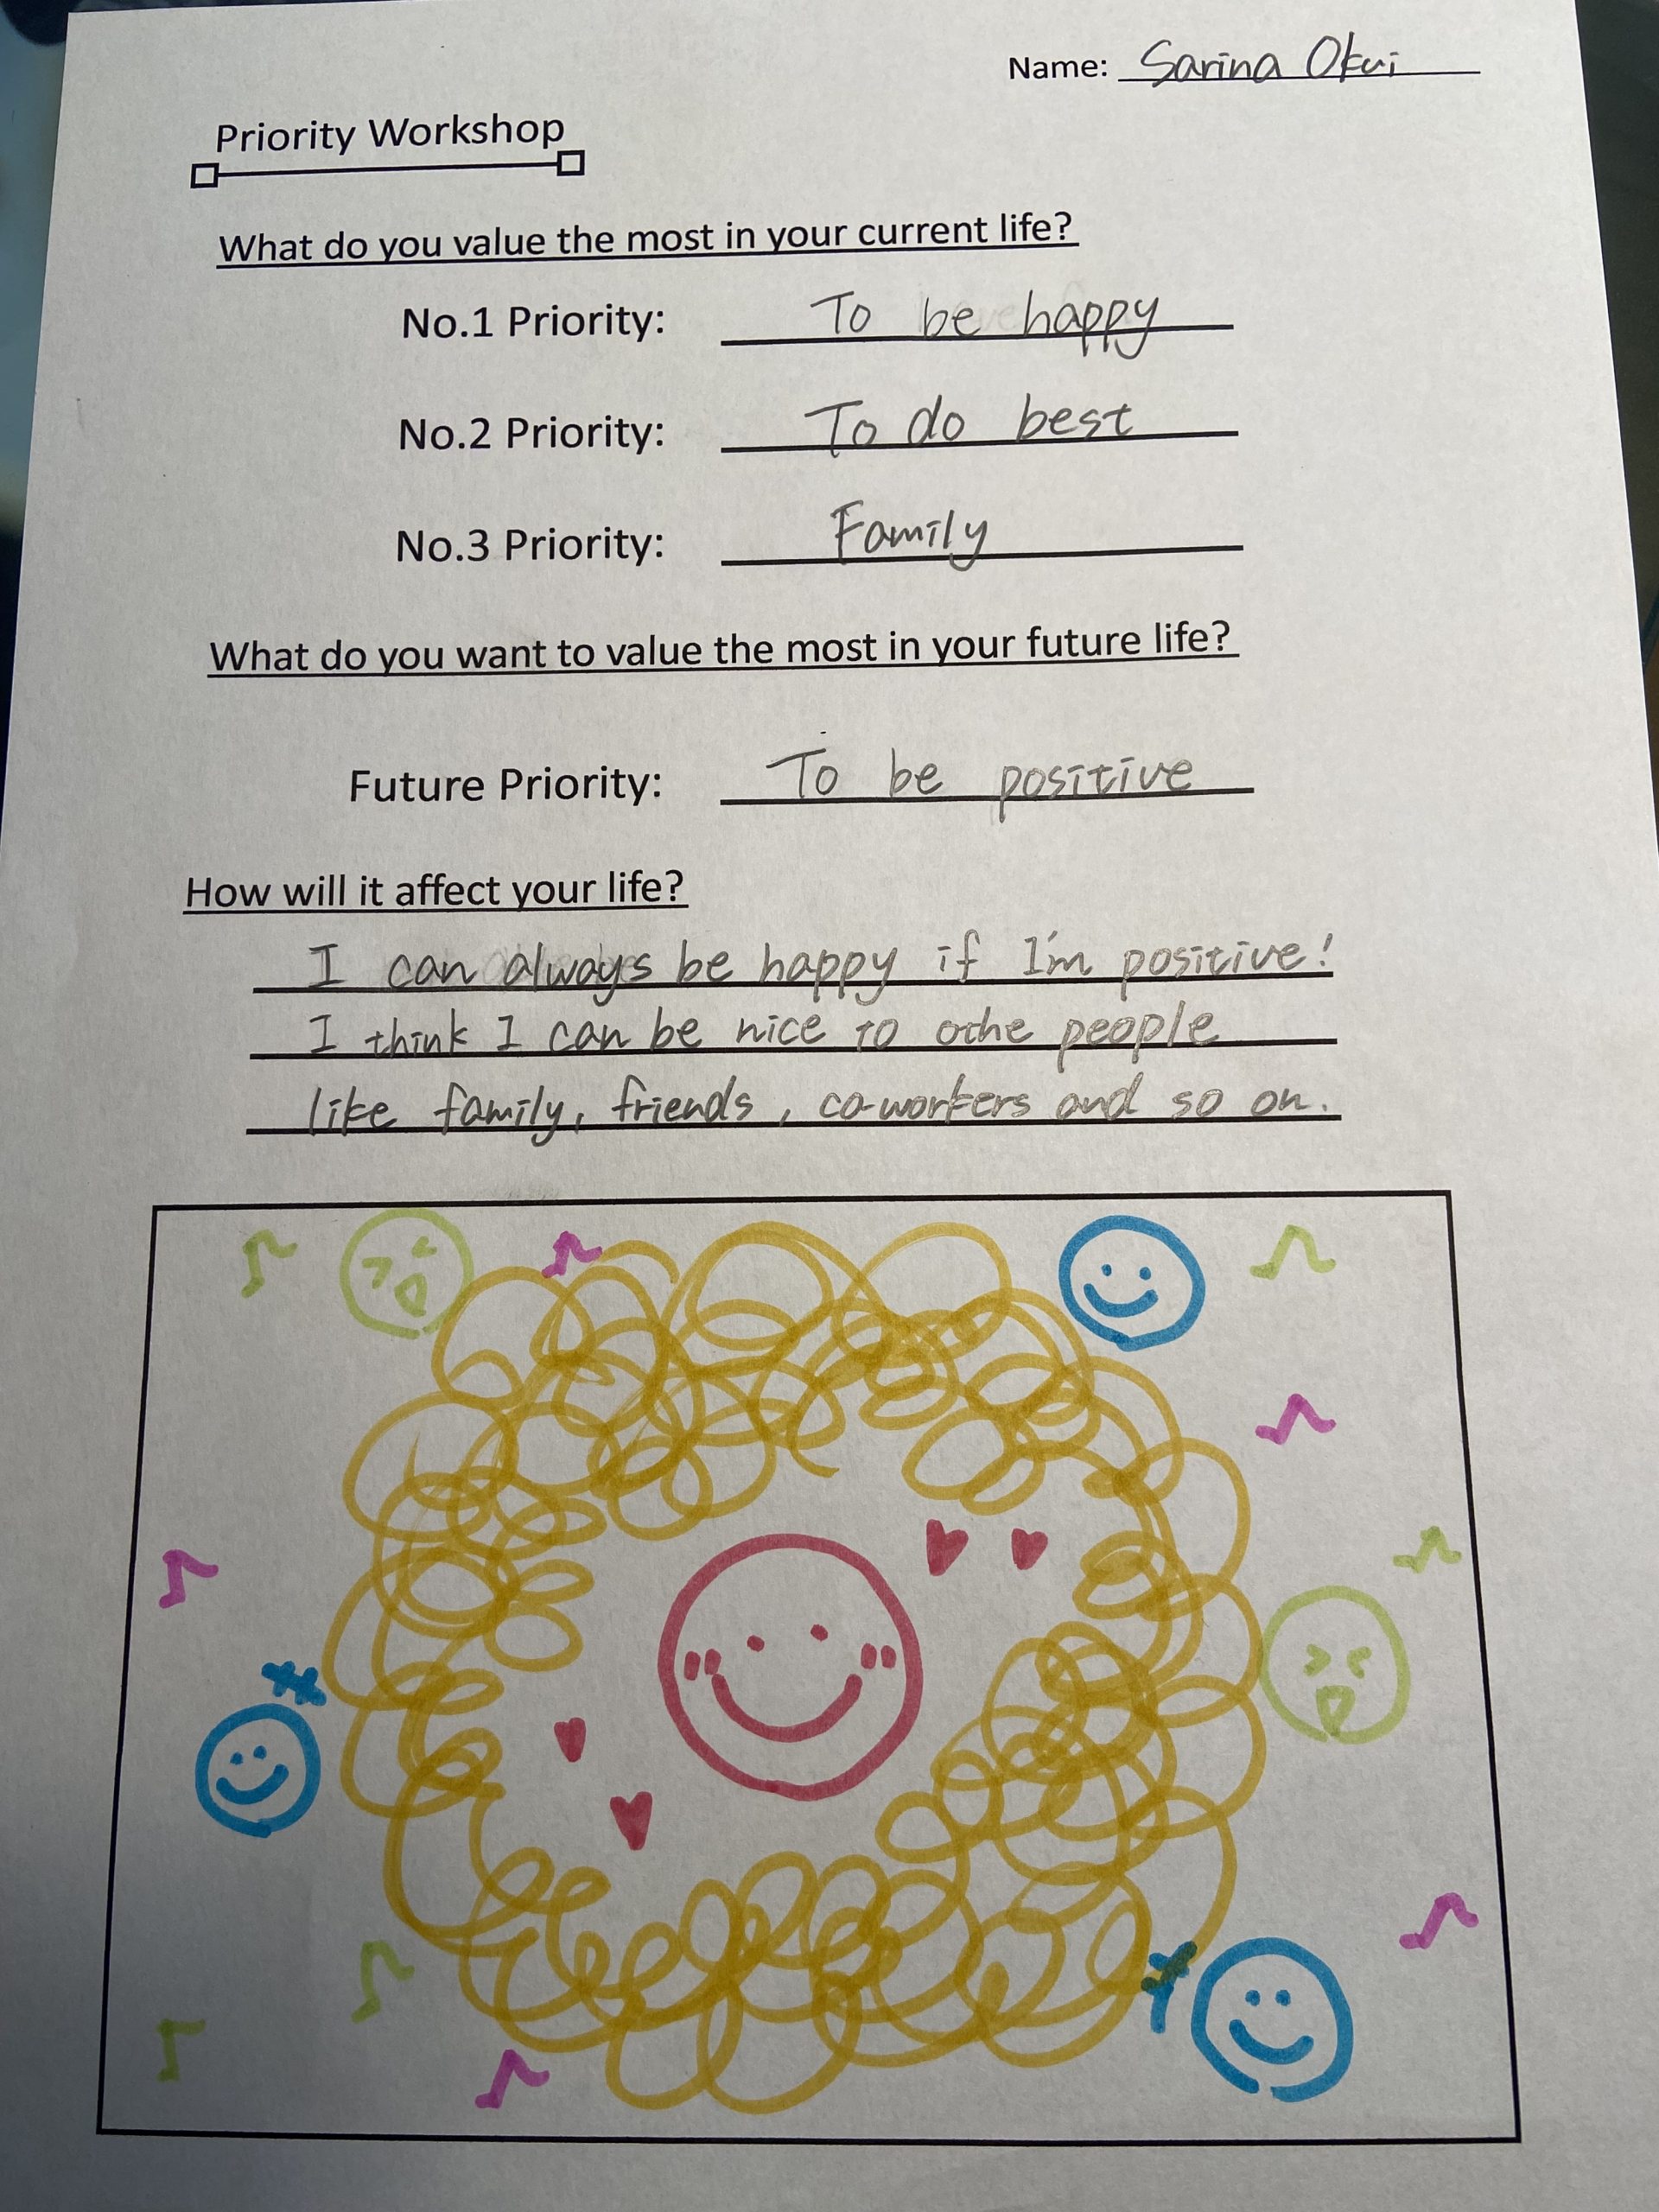 Name: Sarina Okui
Priority Workshop
What do you value the most in your current life?
No.1 Priority: To be happy
No.2 Priority: To do best
No.3 Priority: Family
What do you want to value the most in your future life?
Future Priority: To be positive
How will it affect your life?
I can always be happy if I'm positive!
I think I can be nice to othe people
like family, friends, co-workers and so on.